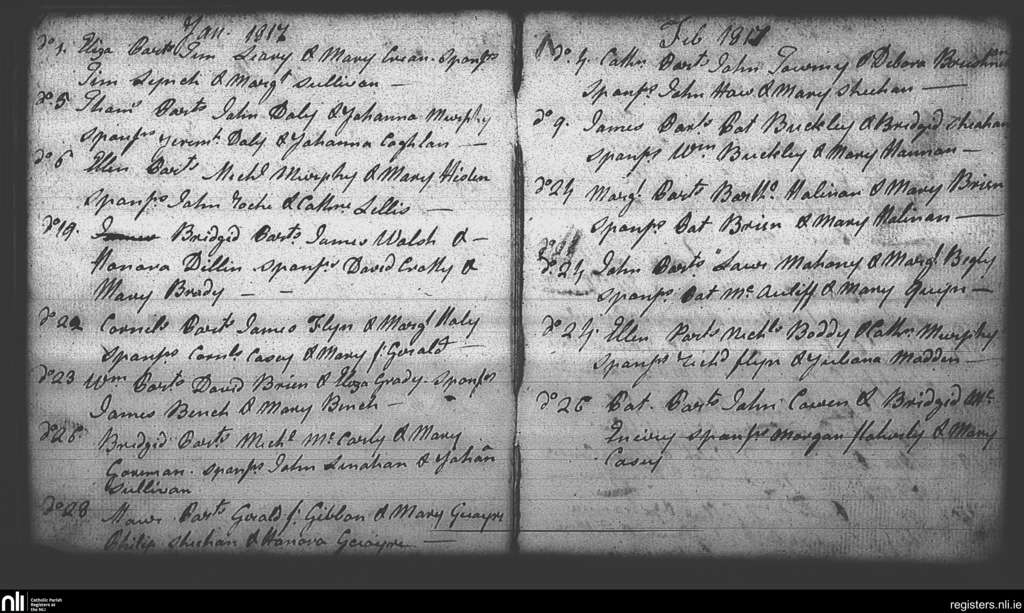 Jan. 1817
do 1. Eliza Parts Tim Leary & Mary Crean. Sponsrs
Tim Lynch & Margt Sullivan —
do 5. Thams Parts John Daly & Johanna Murphy
Sponsrs Jeremh Daly & Johanna Coghlan —
do 6 Ellen Parts Michl Murphy & Mary Hiden
Sponsrs John Roche & Cathne Lellis —
do 19. James Bridgid Parts James Walsh & —
Honora Dillin Sponsrs David Crotty &
Mary Brady — —
do 22 Cornels Parts James Flyn & Margt Haly
Sponsrs Cornls Casey & Mary f. Gerald —
do 23 Wm Parts David Brien & Eliza Grady. Sponsrs
James Bench & Mary Bench —
do 26 Bridgid Parts Michl McCarty & Mary
Goreman. Sponsrs John Linahan & Johan
Sullivan
do 28 Parts Gerald f. Gibbon & Mary
Philip Shehan & Honora —
Feb 1817
do. 4. Cathn Parts John & Debora
Sponsrs John Haw & Mary Shehan —
do 9. James Parts Pat Buckley & Bridgid Shehan
Sponsrs Wm Buckley & Mary Hannan —
do 24 Margt Parts Bartho. Halinan & Mary Brien
Sponsrs Pat Brien & Mary Halinan —
do 24 John Parts Laurs Mahony & Margt Begly
Sponsrs Pat Mc Auliff & Mary —
do 24. Ellen Parts Nichls Boddy & Cathn Murphy
Sponsrs Richd Flyn & Juliana Madden —
do 26 Pat. Parts John Cowen & Bridgid Mc
Eneiry Sponsrs Morgan flaherty & Mary
Casey
nli
Catholic Parish
Registers at
the NLI
registers.nli.ie